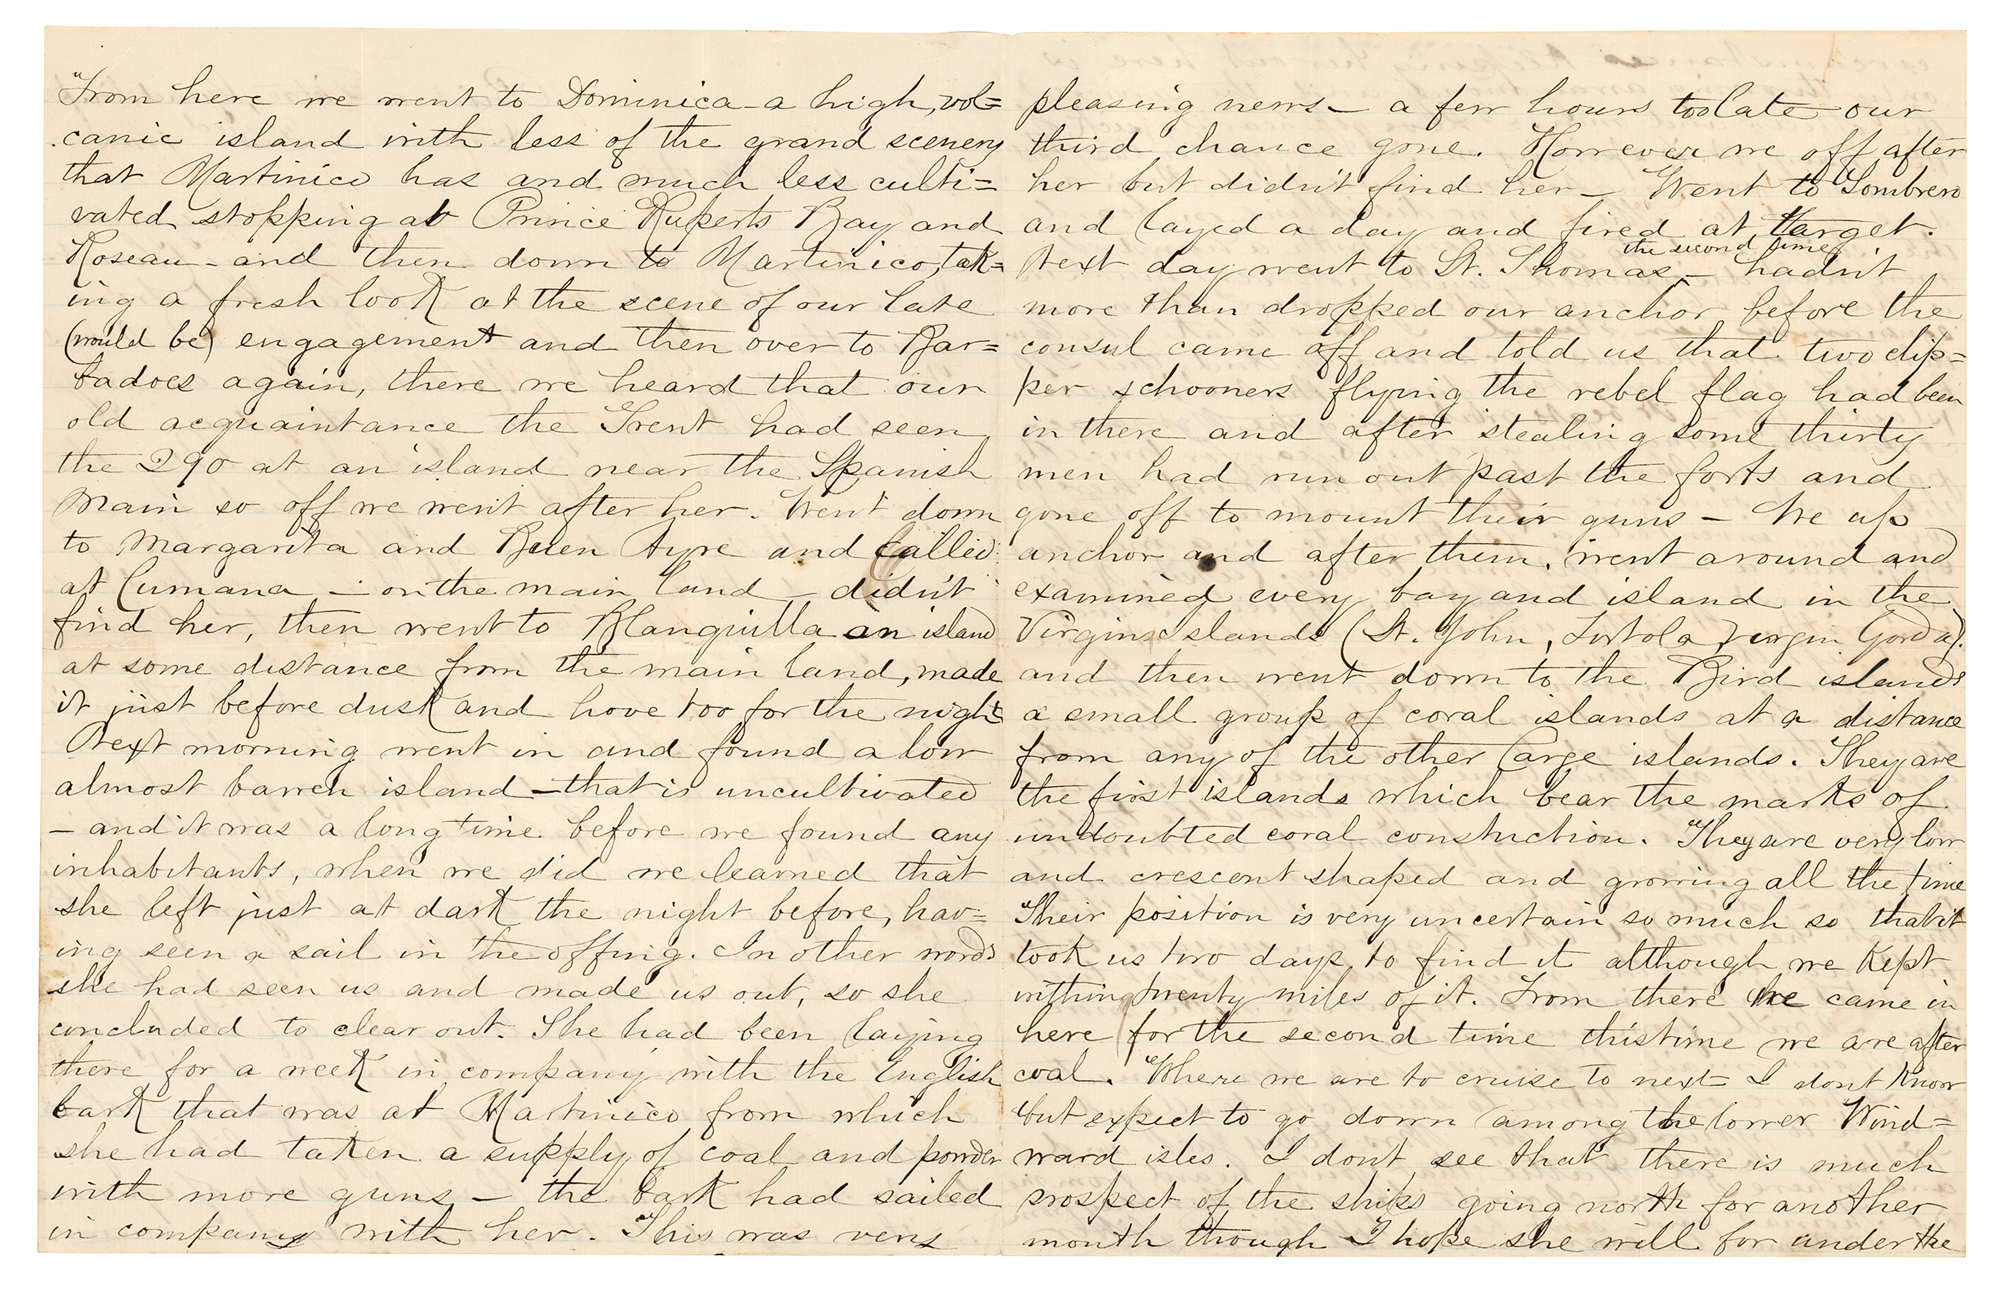 From here we went to Dominica - a high, vol=
canic island with less of the grand scenery
that Martinico has and much less culti=
vated stopping at Prince Ruperts Bay and
Roseau - and then down to Martinico, tak=
ing a fresh look at the scene of our late
(would be) engagement and then over to Bar=
badoes again, there we heard that our
old acquaintance the Trent had seen
the 290 at an island near the Spanish
Main so off we went after her. Went down
to Margarita and Buen Ayre and called
at Cumana - on the main land - didn't
find her, then went to Blanquilla an island
at some distance from the main land, made
it just before dusk and hove too for the night
Next morning went in and found a low
almost barren island - that is uncultivated
- and it was a long time before we found any
inhabitants, when we did we learned that
she left just at dark the night before, hav=
ing seen a sail in the offing. In other words
she had seen us and made us out, so she
concluded to clear out. She had been laying
there for a week in company with the English
bark that was at Martinico from which
she had taken a supply of coal and powder
with more guns - the bark had sailed
in company with her. This was very
pleasing news - a few hours too late our
third chance gone. However we off after
her but didn't find her - Went to Sombrero
and layed a day and fired at target.
the second time
Next day went to St. Thomas - hadn't
more than dropped our anchor before the
consul came off and told us that two clip=
per schooners flying the rebel flag had been
in there and after stealing some thirty
men had run out past the forts and
gone off to mount their guns - We up
anchor and after them, went around and
examined every bay and island in the
Virgin Islands (St. John, Tortola Virgin Gorda).
and then went down to the Bird islands
a small group of coral islands at a distance
from any of the other large islands. They are
the first islands which bear the marks of
undoubted coral constuction. They are very low
and crescent shaped and growing all the time
Their position is very uncertain so much so that it
took us two days to find it although we kept
within twenty miles of it. From there we came in
here for the second time this time we are after
coal. Where we are to cruise to next I dont know
but expect to go down among the lower Wind=
ward isles. I dont see that there is much
prospect of the ships going north for another
month though I hope she will for under the